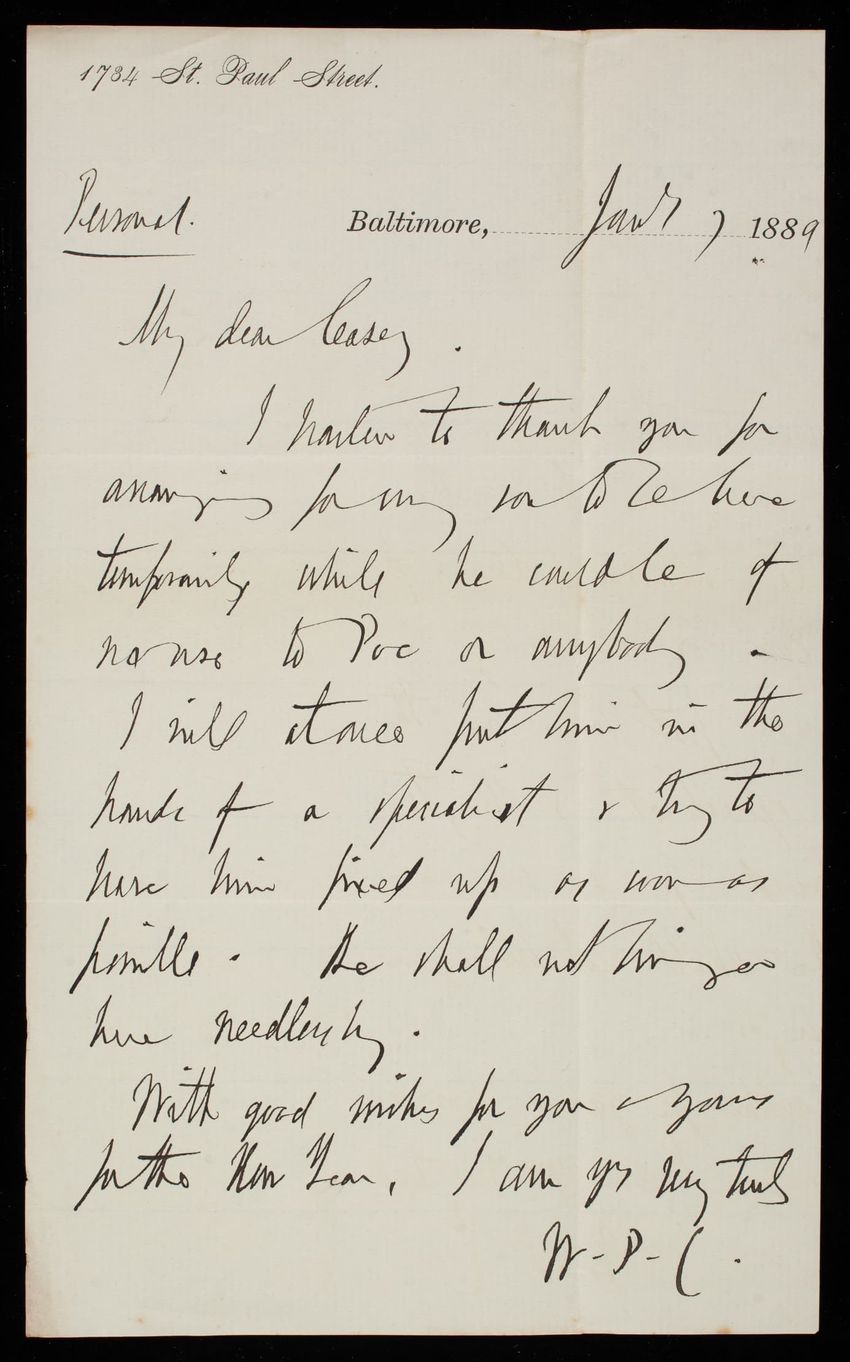 1734 St. Paul Street.
Personal. Baltimore, Jany 7 1889
My dear Casey.
I hasten to thank you for
arranging for my son to be here
temporarily while he could be of
no use to Poe or anybody.
I will at once put him in the
hands of a specialist & try to
have him fixed up as soon as
possible. He shall not linger
here needlessly.
With good wishes for you & yours
for the New Year, I am yrs very truly
W-P-C.